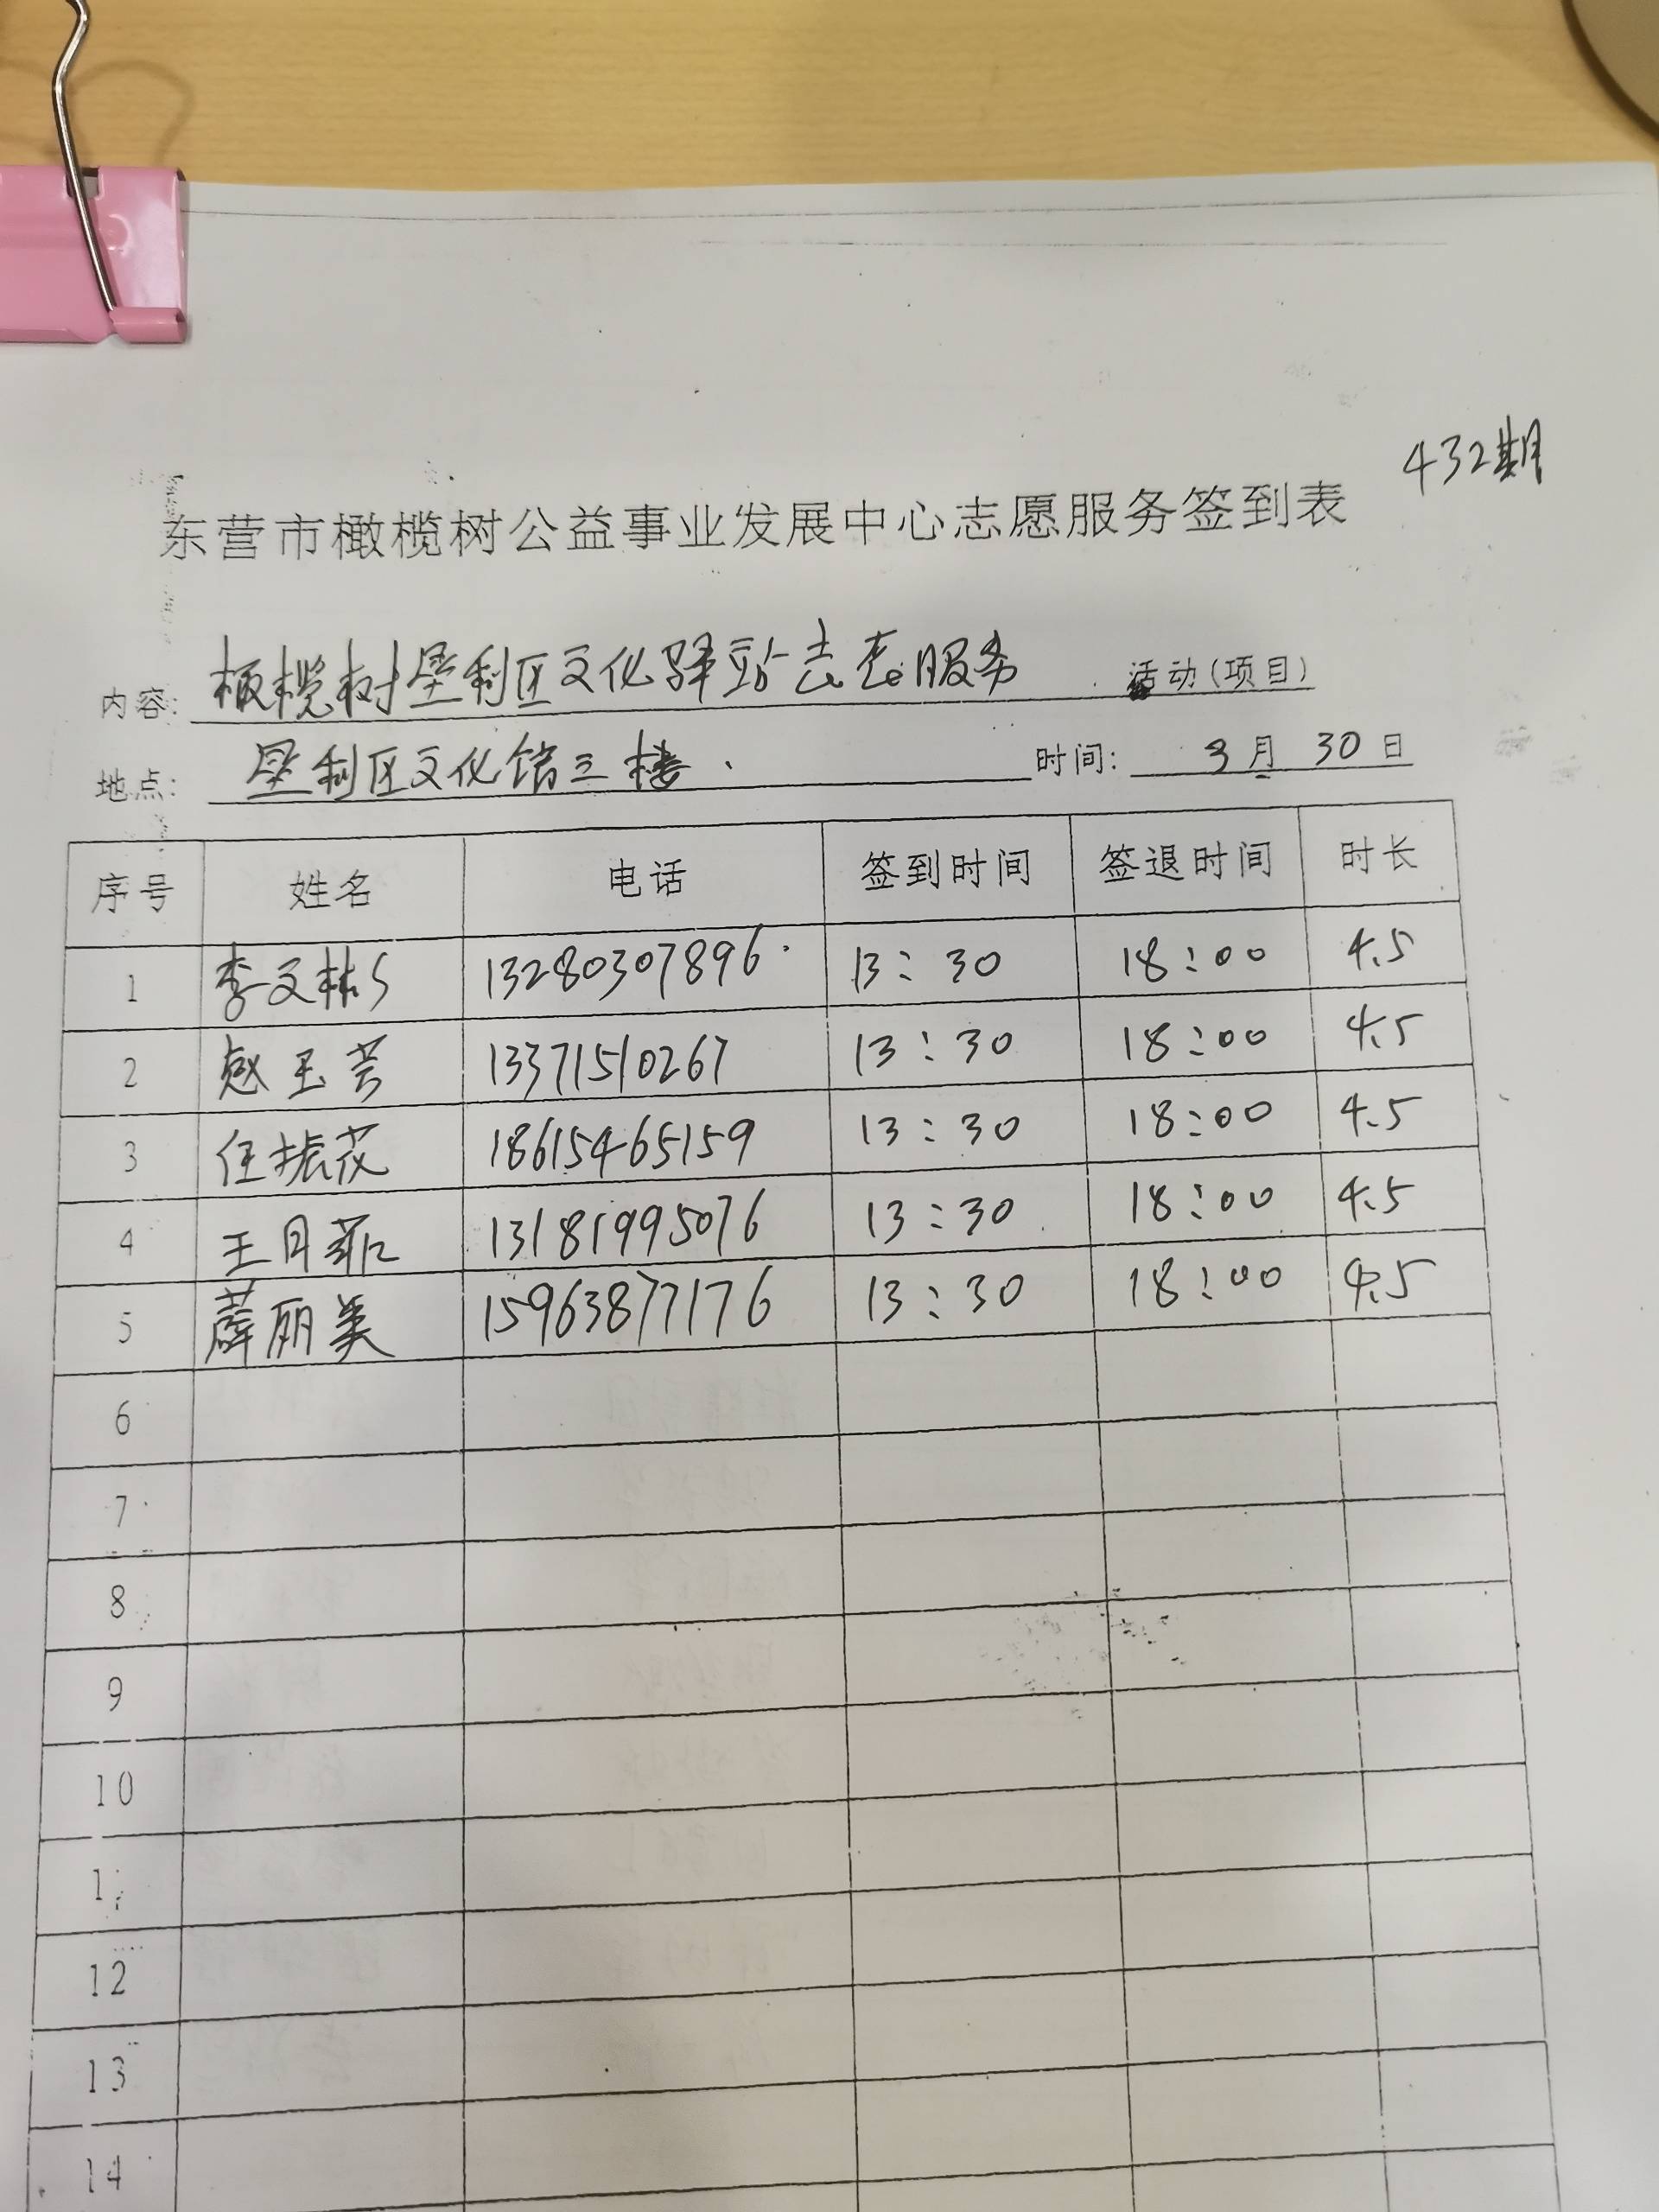 432期
东营市橄榄树公益事业发展中心志愿服务签到表
内容: 橄榄树垦利区文化驿站志愿服务 活动(项目)
地点: 垦利区文化馆三楼. 时间: 3月30日
序号 姓名 电话 签到时间 签退时间 时长
1 李文彬 13280307896 13:30 18:00 4.5
2 赵玉芸 13371510267 13:30 18:00 4.5
3 任振花 18615465159 13:30 18:00 4.5
4 王月菲 13181995076 13:30 18:00 4.5
5 薛丽美 15963877176 13:30 18:00 4.5
6
7
8
9
10
12
13
14